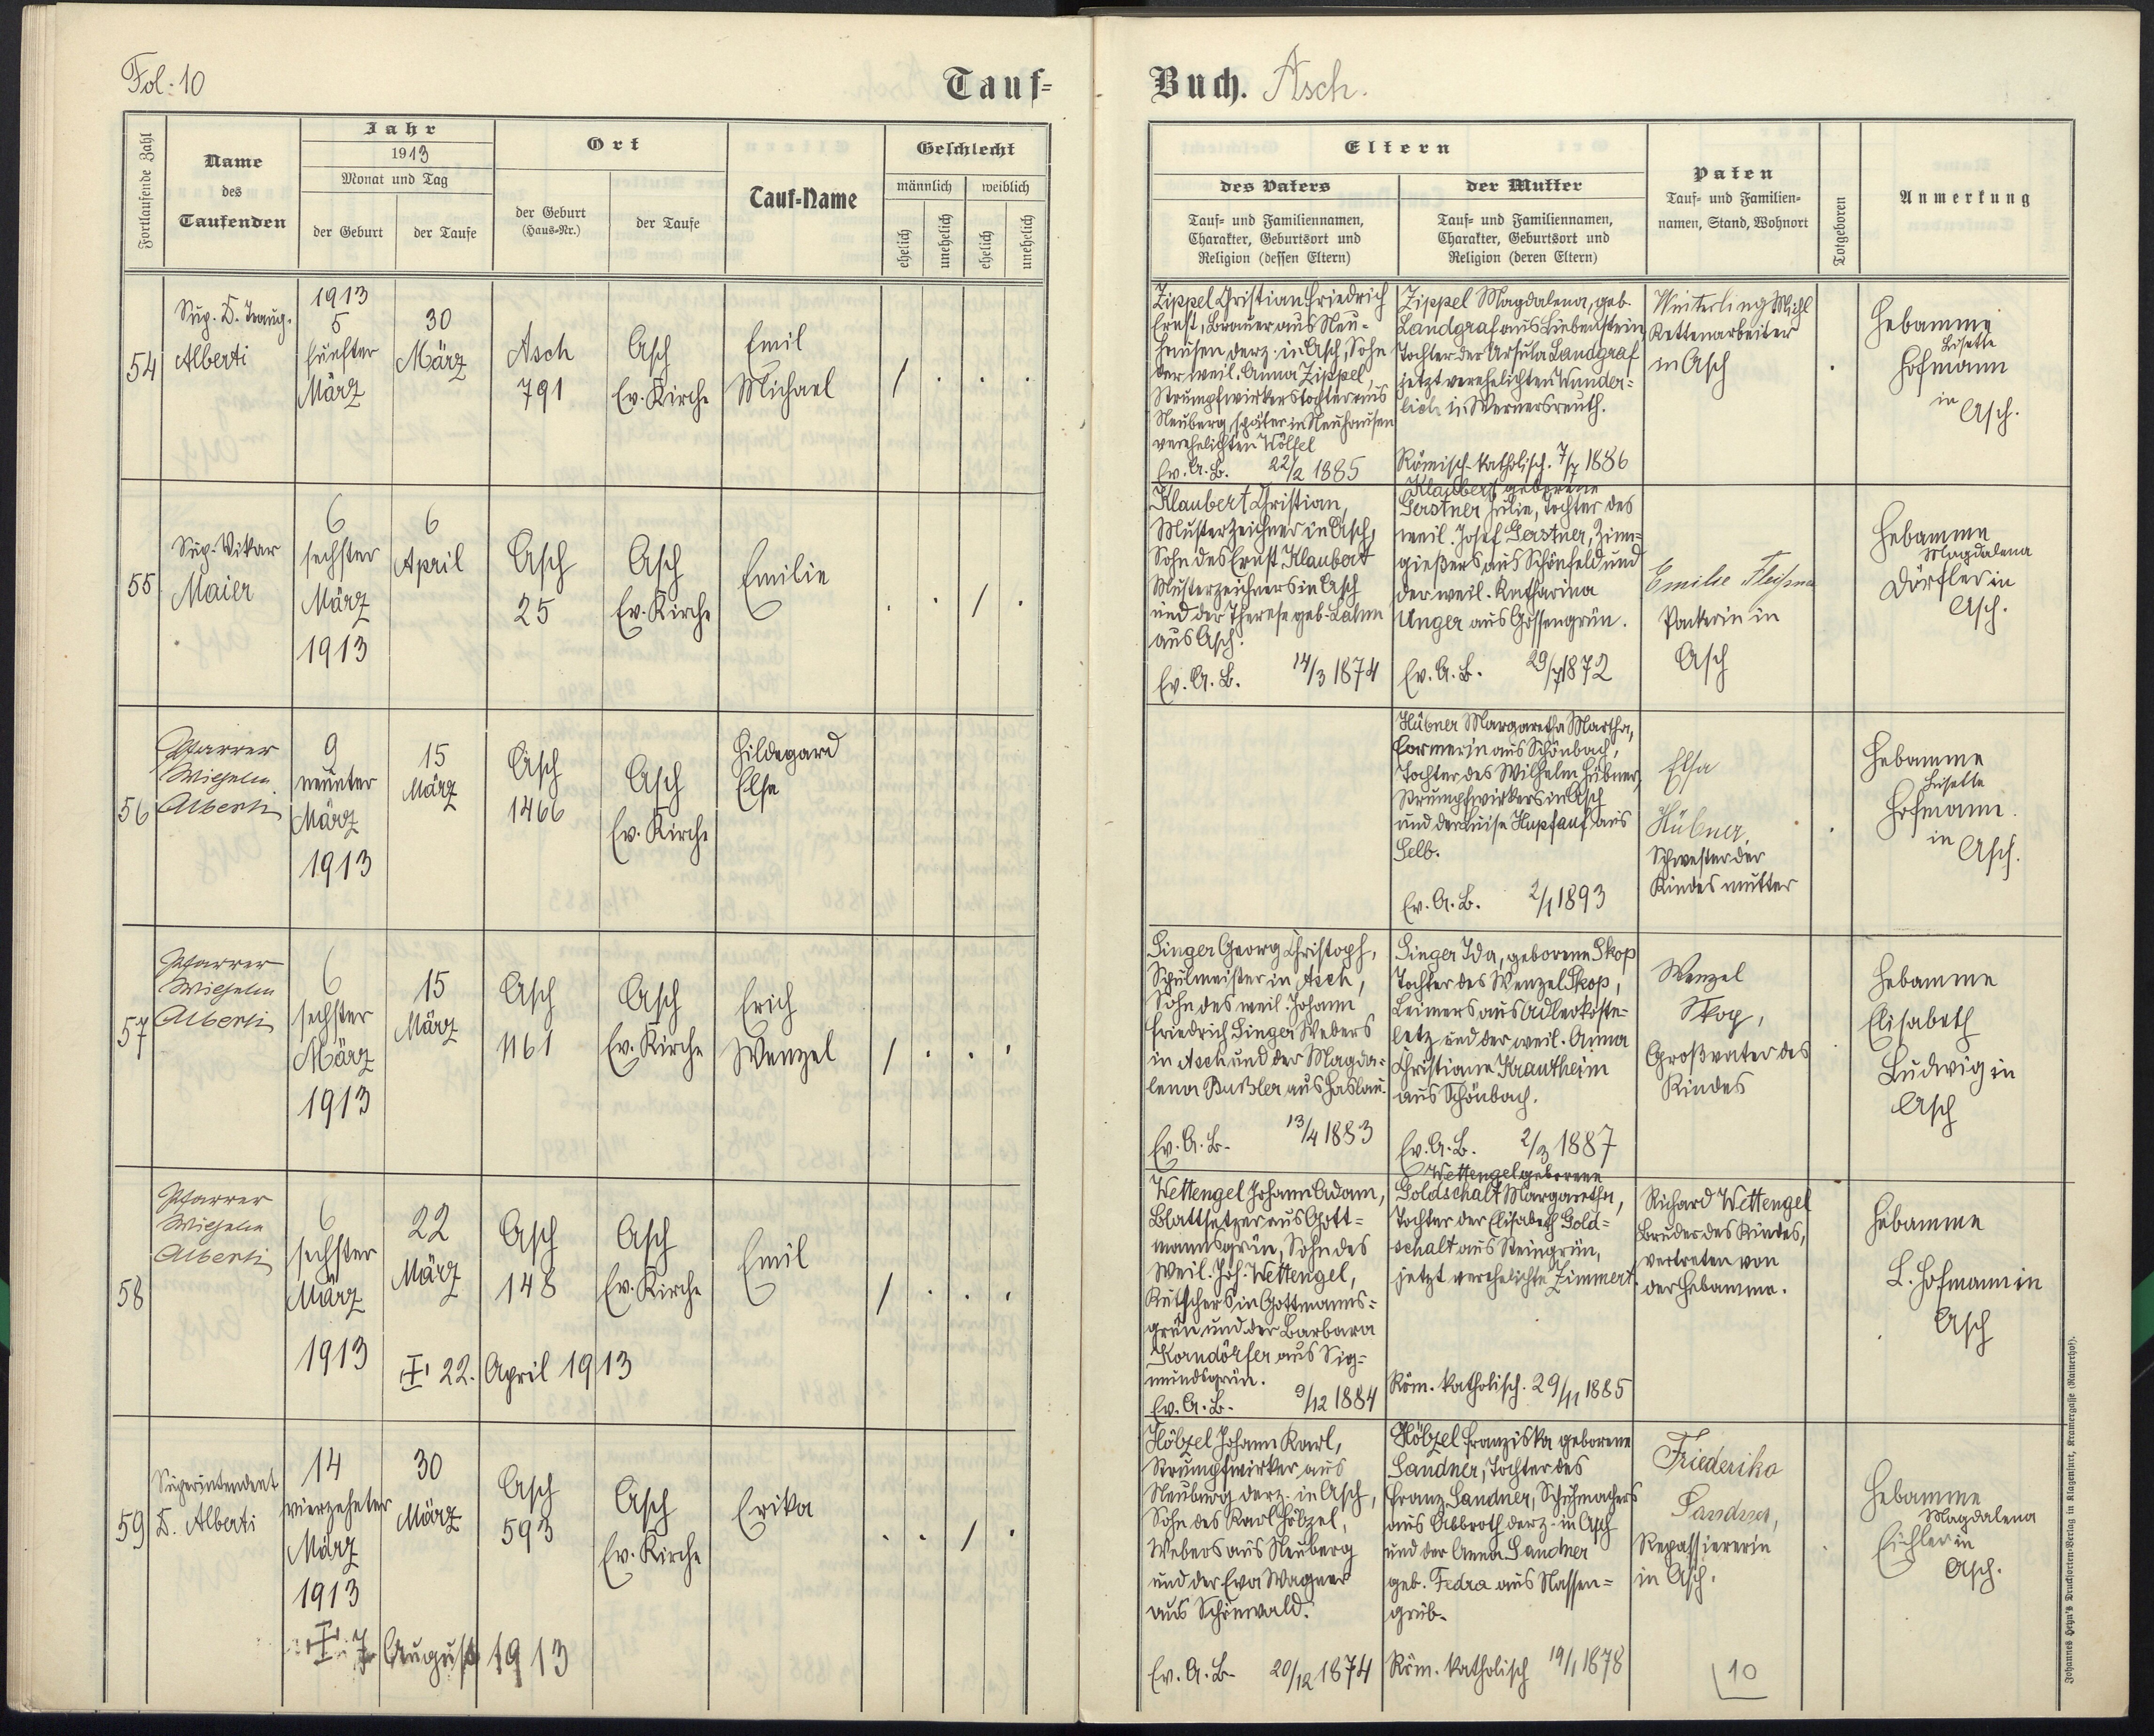 Fol: 10
Tauf=
Buch. Asch.
Fortlaufende Zahl
Name
des
Taufenden
Jahr
1913
Monat und Tag
der Geburt
der Taufe
Ort
der Geburt
(Haus=Nr.)
der Taufe
Tauf=Name
Geschlecht
männlich
weiblich
ehelich
unehelich
ehelich
unehelich
Eltern
des Vaters
Tauf= und Familiennamen,
Charakter, Geburtsort und
Religion (dessen Eltern)
der Mutter
Tauf= und Familiennamen,
Charakter, Geburtsort und
Religion (deren Eltern)
Paten
Tauf= und Familien=
namen, Stand, Wohnort
Totgeboren
Anmerkung
54
Sup. D. Traug.
Alberti
1913
5
fünfter
März
30
März
Asch
791
Asch
Ev. Kirche
Emil
Michael
/ . . .
Zippel Christian Friedrich
Ernst, Brauer aus Neu=
hausen derz. in Asch, Sohn
der weil. Anna Zippel,
Strumpfwirkerstochter aus
Neuberg, später in Neuhausen
verehelichten Wölfel
Ev. A. B. 22/2 1885
Zippel Magdalena, geb.
Landgraf aus Liebenstein,
Tochter der Ursula Landgraf
jetzt verehelichten Wunder=
lich in Wernersreuth.
Römisch-katholisch. 7/7 1886
Winterling Michl
Kettenarbeiter
in Asch
.
Hebamme
Lisette
Hofmann
in
Asch.
55
Sup. Vikar
Maier
6
sechster
März
1913
6
April
Asch
25
Asch
Ev. Kirche
Emilie
. . / .
Klaubert Christian,
Musterzeichner in Asch,
Sohn des Ernst Klaubert
Musterzeichners in Asch
und der Therese geb. Lahm
aus Asch.
Ev. A. B. 14/3 1874
Klaubert geborene
Gerstner Julie, Tochter des
weil. Josef Gerstner, Zinn=
gießers aus Schönfeld und
der weil. Katharina
Unger aus Gossengrün.
Ev. A. B. 29/7 1872
Emilie
Packerin in
Asch
Hebamme
Magdalena
Dörfler in
Asch.
56
Pfarrer
Wilhelm
Alberti
9
neunter
März
1913
15
März
Asch
1466
Asch
Ev. Kirche
Hildegard
Elsa
Hübner Margaretha Martha,
Formerin aus Schönbach,
Tochter des Wilhelm Hübner,
Strumpfwirkers in Asch
und der Luise Hupfauf aus
Selb.
Ev. A. B. 2/1 1893
Elsa
Hübner,
Schwester der
Kindesmutter
.
Hebamme
Lisette
Hofmann.
in
Asch.
57
Pfarrer
Wilhelm
Alberti
6
sechster
März
1913
15
März
Asch
1161
Asch
Ev. Kirche
Erich
Wenzel
/ . . .
Singer Georg Christoph,
Schulmeister in Asch,
Sohn des weil. Johann
Friedrich Singer Webers
in Asch und der Magda=
lena Bußler aus Haslau.
Ev. A. B. 13/4 1883
Singer Ida, geborene Skop
Tochter des Wenzel Skop,
Leimers aus Adlerkoste=
letz und der weil. Anna
Christiane Krautheim
aus Schönbach.
Ev. A. B. 2/3 1887
Wenzel
Skop,
Großvater des
Kindes
Hebamme
Elisabeth
Ludwig in
Asch
58
Pfarrer
Wilhelm
Alberti
6
sechster
März
1913
22
März
Asch
148
Asch
Ev. Kirche
Emil
/ . . .
22. April 1913
Wettengel Johann Adam,
Blattsetzer aus Gott=
mannsgrün, Sohn des
weil. Joh. Wettengel,
Kutschers in Gottmanns=
grün und der Barbara
Korndörfer aus Sig=
mundsgrün.
Ev. A. B. 9/12 1884
Wettengel geborene
Goldschalt Margaretha,
Tochter der Elisabeth Gold=
schalt aus Steingrün,
jetzt verehelichte Zimmert.
Röm. katholisch. 29/11 1885
Richard Wettengel
Bruder des Kindes,
vertreten von
der Hebamme.
Hebamme
L. Hofmann in
Asch
59
Superintendent
D. Alberti
14
vierzehnter
März
1913
30
März
Asch
593
Asch
Ev. Kirche
Erika
. . / .
7. August 1913
Hölzel Johann Karl,
Strumpfwirker aus
Neuburg derz. in Asch,
Sohn des Karl Hölzel,
Webers aus Neuberg
und der Eva Wagner
aus Schönwald.
Ev. A. B. 20/12 1874
Hölzel Franziska geborene
Sandner, Tochter des
Franz Sandner, Schuhmachers
aus Abbroth derz. in Asch
und der Anna Sandner
geb. Fedra aus Nassen=
grub.
Röm. katholisch 19/1 1878
Friederika
Sandner,
Repassiererin
in Asch.
Hebamme
Magdalena
Eichler in
Asch.
10
Johannes Heyn's Drucksorten=Verlag in Klagenfurt, Kramergasse (Rainerhof).